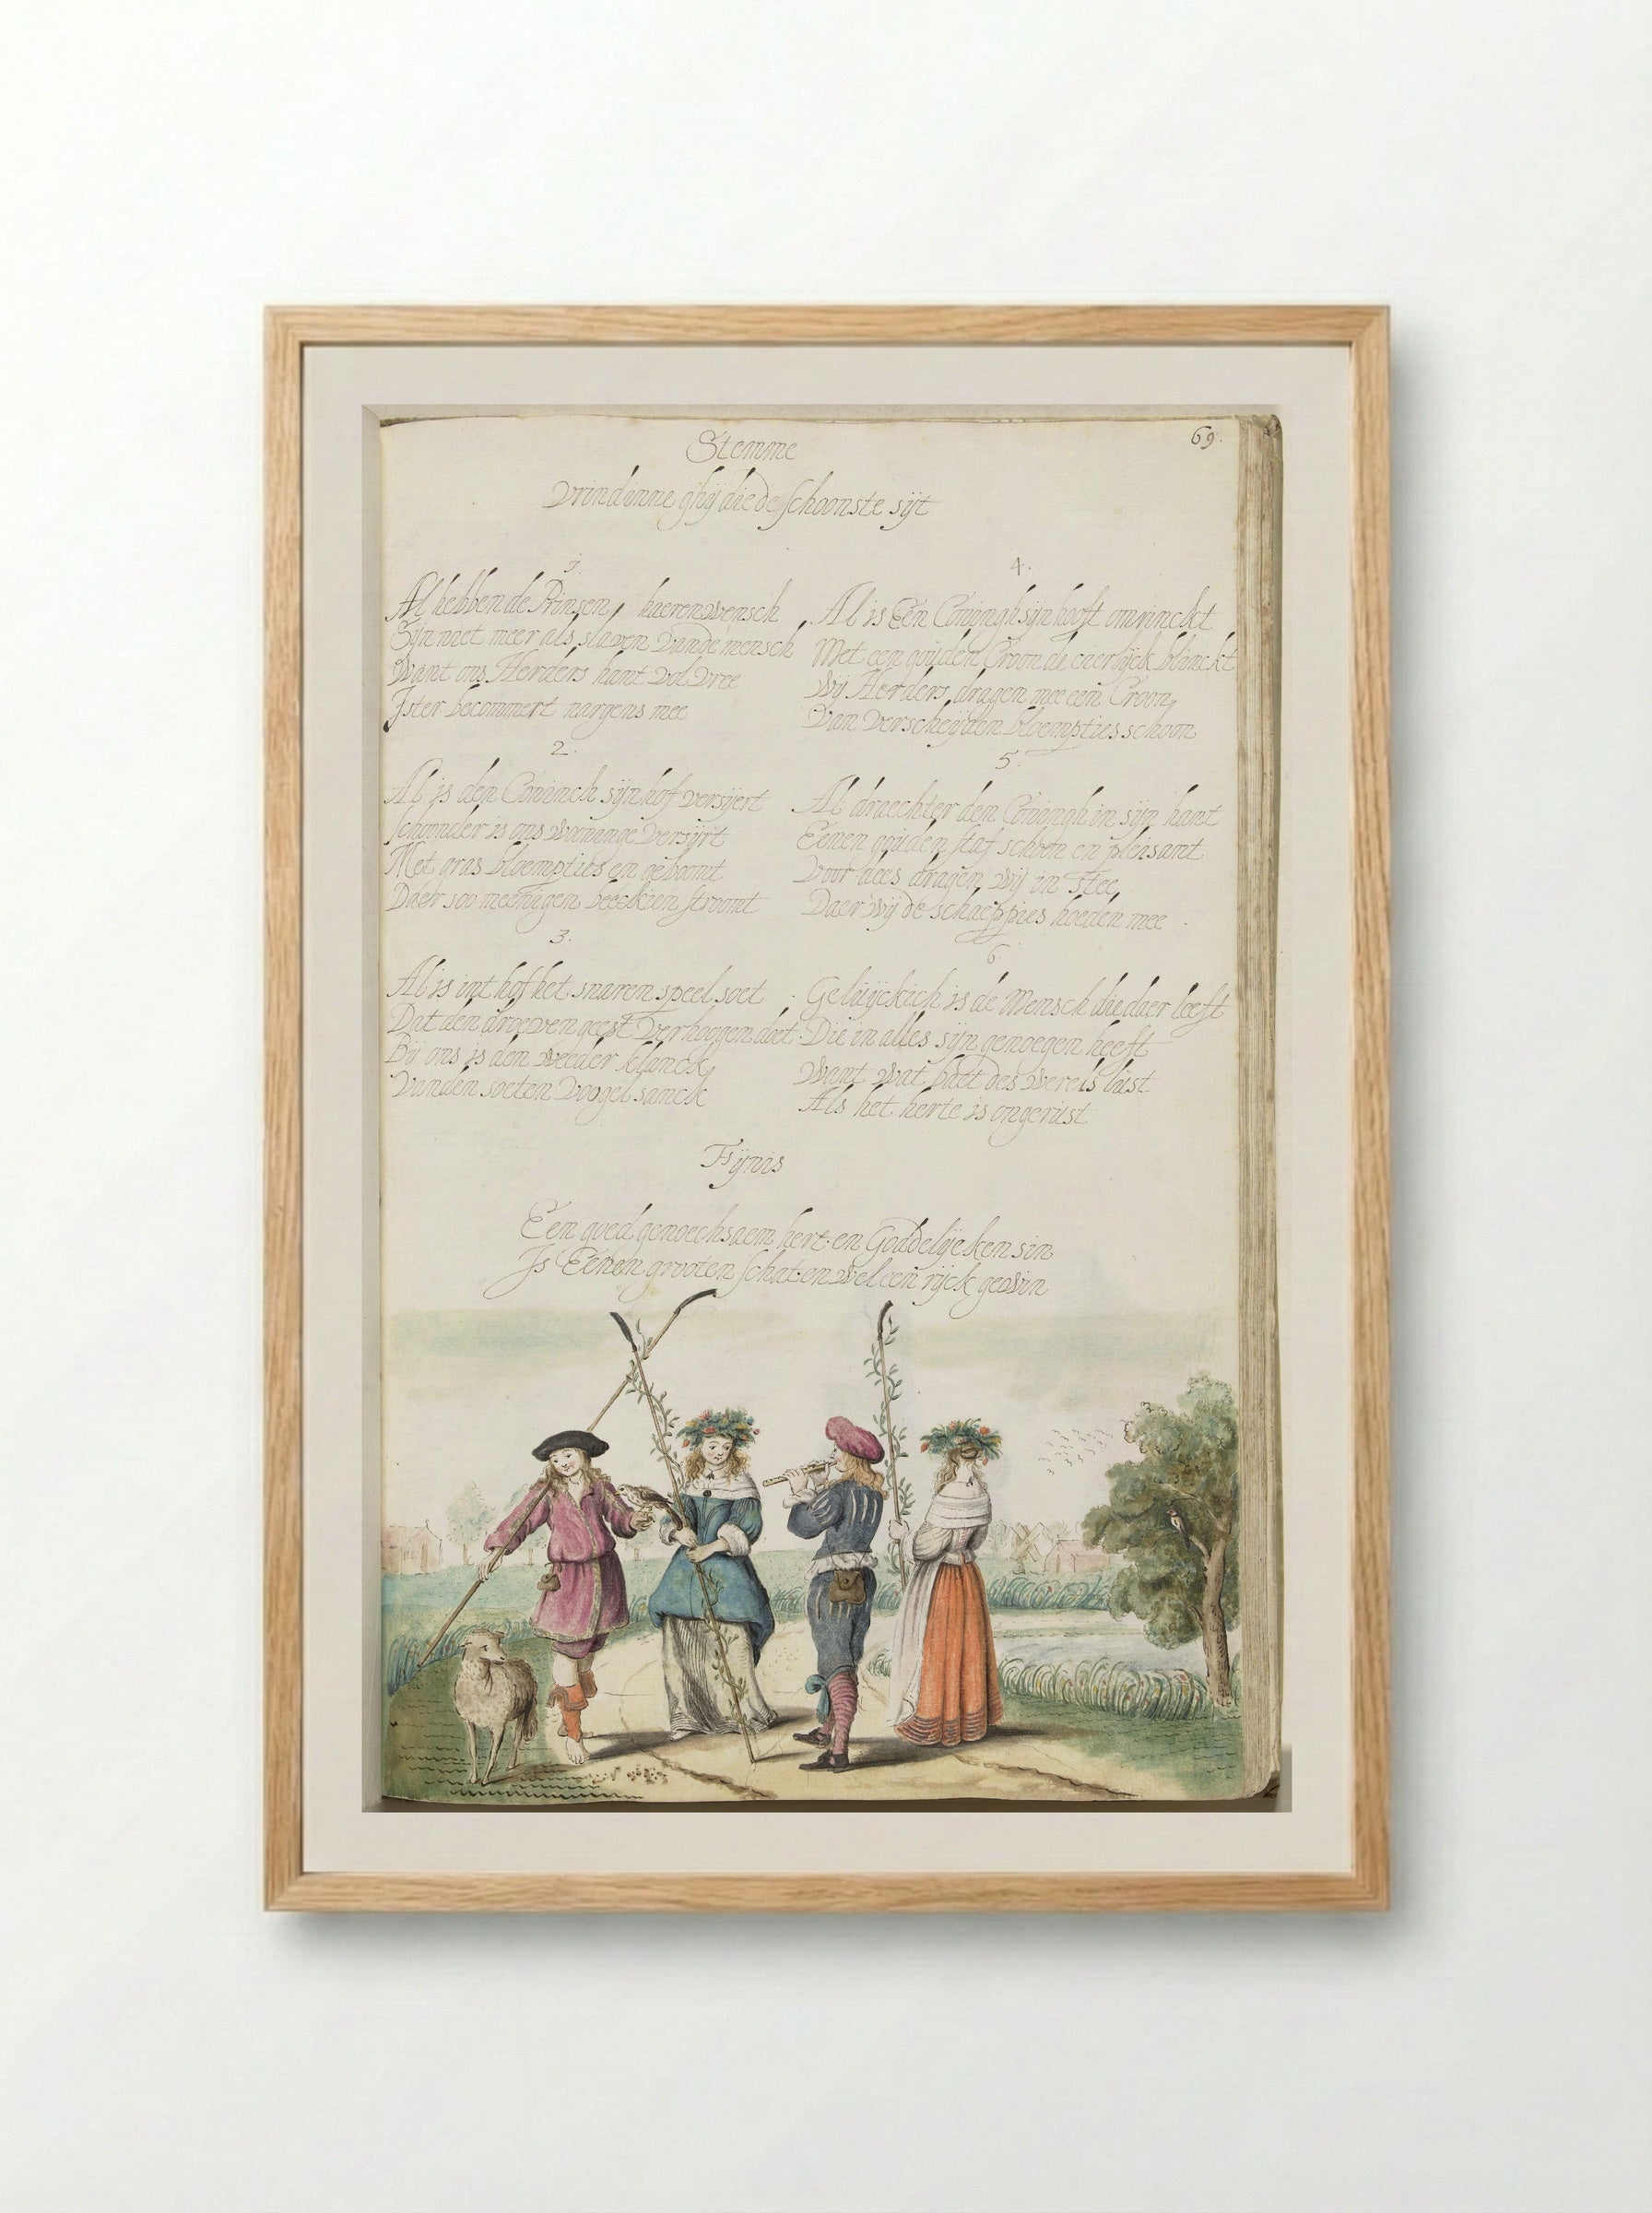 69.
Stemme
Vrindinne ghij die de schoonste sijt
1
Al hebben de Prinsen, haeren wensch
Sijn niet meer als slaven vande mensch
Want ons Herders hant vol vree
Ister becommert nargens mee
2.
Al is den Coninch sijn hof versijert
schoonder is ons wooninge versijrt
Met gras bloempties en geboomt
Daer soo meenigen beeckien stroomt
3.
Al is int hof het snaren speel soet
Dat den droeven geest verhoogen doet
Bij ons is den weeder klanck
Vanden soeten voogel sanck
4.
Al is Een Coningh sijn hooft omrinckt
Met een gouden Croon de caerlijck blinckt
Wij Herders dragen mee een Croon
Van verscheijden bloempties schoon
5.
Al draechter den Coningh in sijn hant
Eenen gouden staf schoon en plesant
Voor dees dragen wij in stee
Daer wij de schaeppies hoeden mee
6
Geluijckich is de Mensch die daer leeft
Die in alles sijn genoegen heeft
Want wat baet des werels lust
Als het herte is ongerust
Fijnis
Een goed genoechsaem hert en Goddelijcken sin
Is Eenen grooten schat en wel een rijck gewin